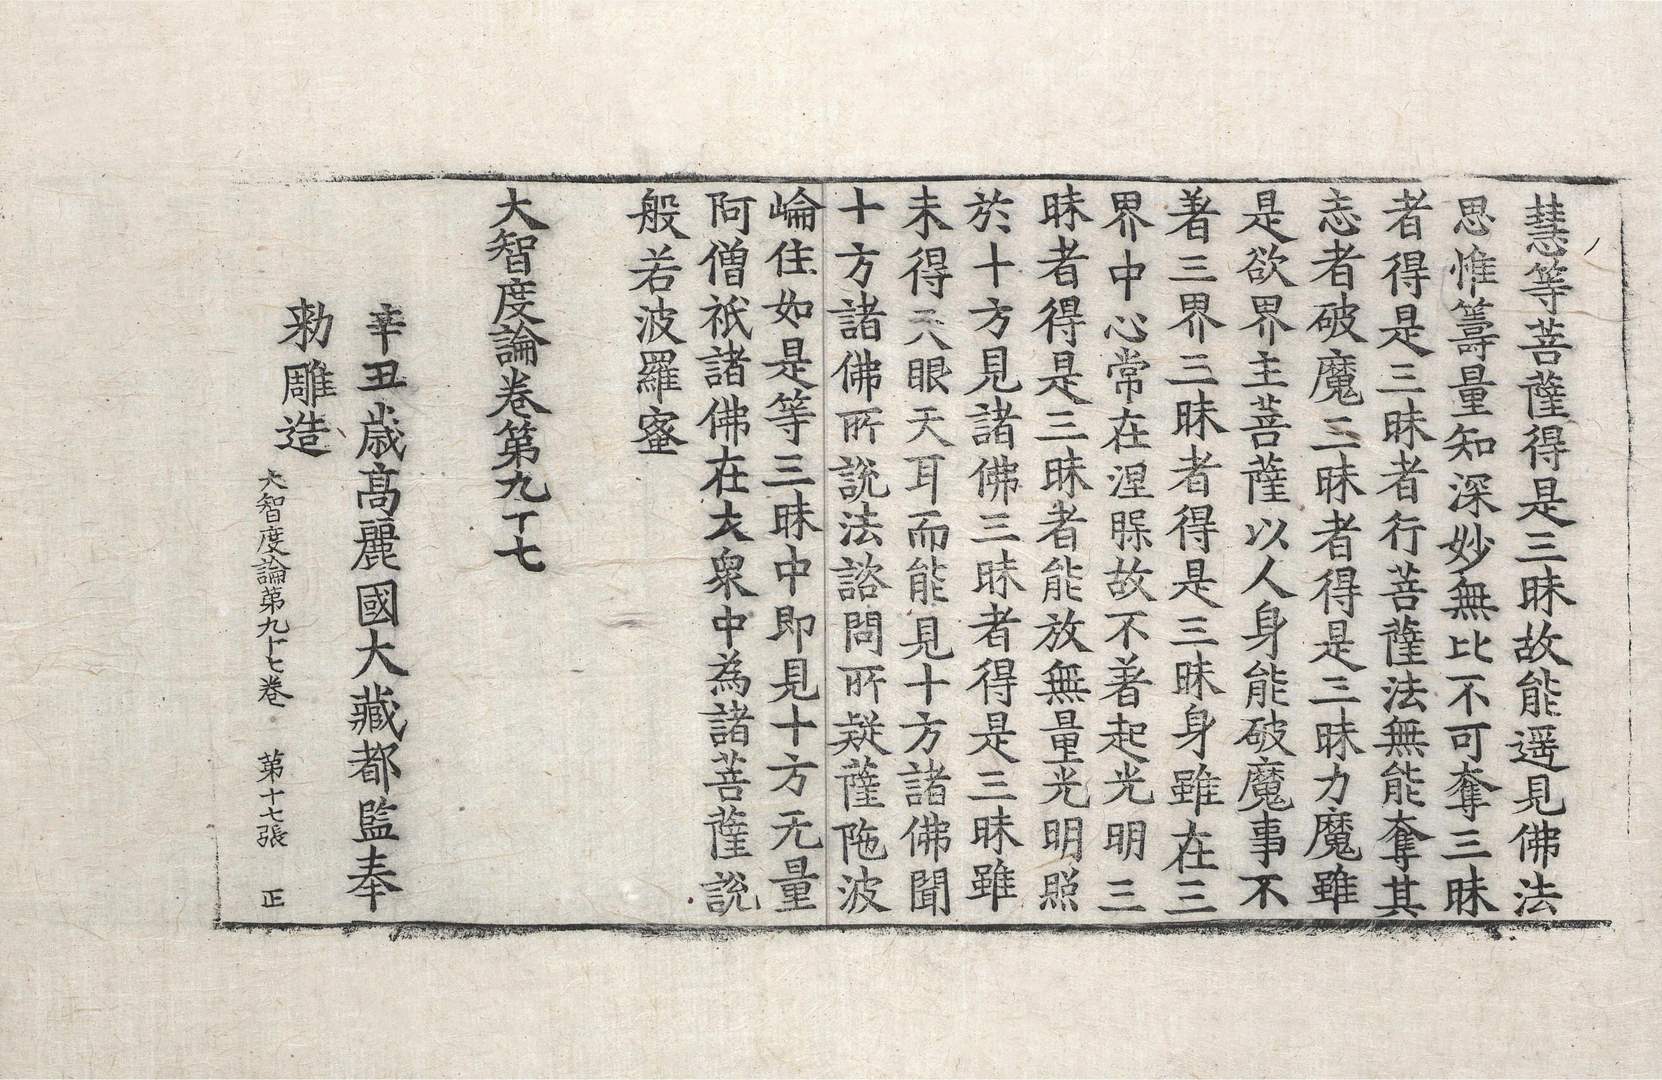 慧等菩薩得是三昧故能遥見佛法
思惟籌量知深妙無比不可奪三昧
者得是三昧者行菩薩法無能奪其
志者破魔三昧者得是三昧力魔雖
是欲界主菩薩以人身能破魔事不
著三界三昧者得是三昧身雖在三
界中心常在涅槃故不著起光明三
昧者得是三昧者能放無量光明照
於十方見諸佛三昧者得是三昧雖
未得天眼天耳而能見十方諸佛聞
十方諸佛所說法諮問所疑薩陁波
崙住如是等三昧中即見十方无量
阿僧祇諸佛在大衆中為諸菩薩說
般若波羅蜜
大智度論卷第九十七
辛丑歲高麗國大藏都監奉
勅雕造
大智度論第九十七卷 第十七張 正